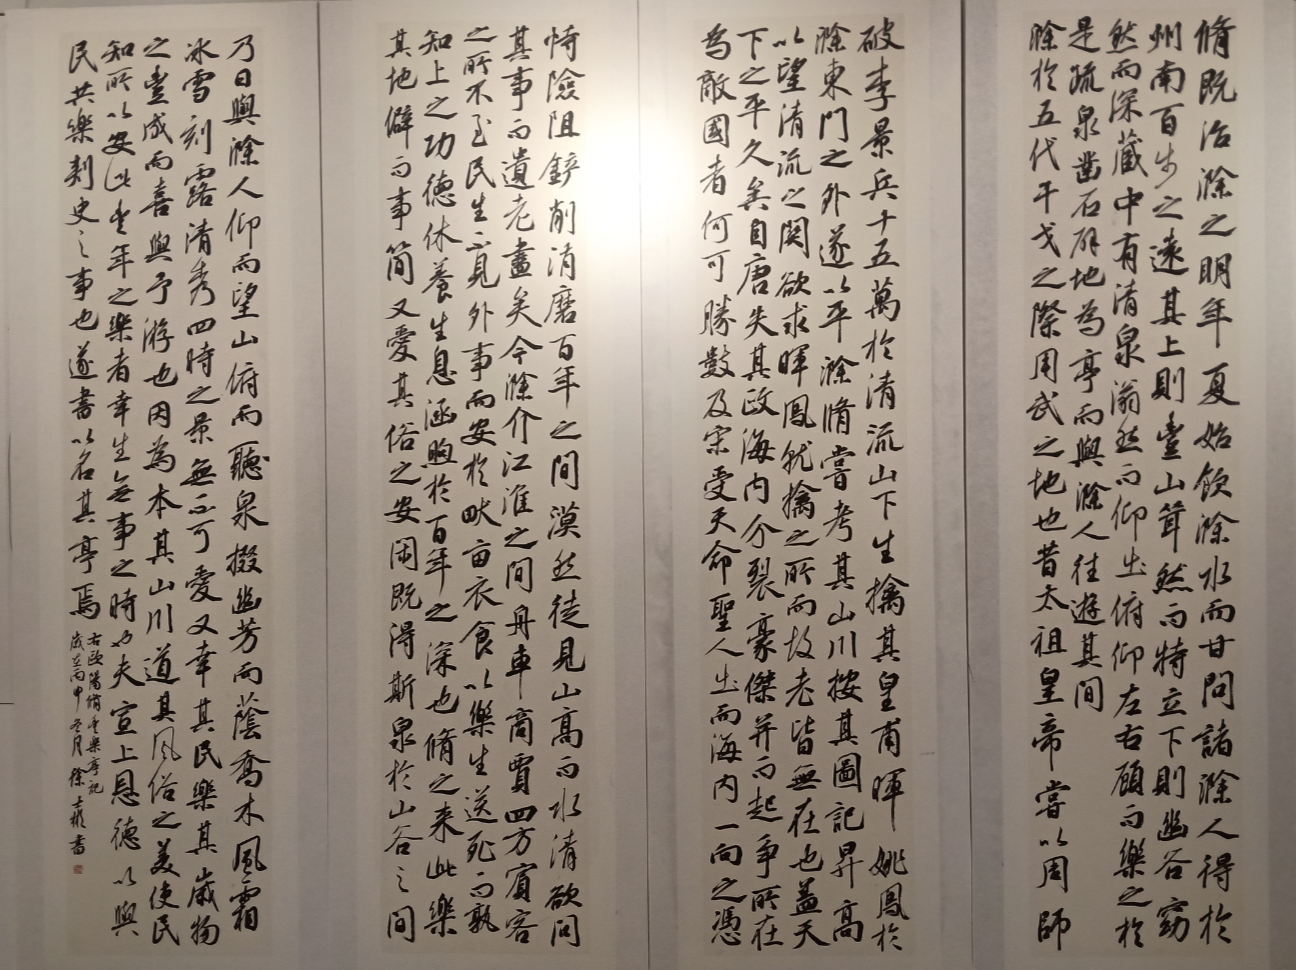 脩既治滁之明年夏始飲滁水而甘問諸滁人得於
州南百步之遠其上則豐山聳然而特立下則幽谷窈
然而深藏中有清泉滃然而仰出俯仰左右顧而樂之於
是疏泉鑿石辟地為亭而與滁人往遊其間
滁於五代干戈之際用武之地也昔太祖皇帝嘗以周師
破李景兵十五萬於清流山下生擒其皇甫暉姚鳳於
滁東門之外遂以平滁脩嘗考其山川按其圖記昇高
以望清流之関欲求暉鳳就擒之所而故老皆無在也蓋天
下之平久矣自唐失其政海内分裂豪傑并而起爭所在
為敵國者何可勝數及宋受天命聖人出而海内一向之憑
恃險阻鏟削消磨百年之間漠然徒見山高而水清欲問
其事而遺老盡矣今滁介江淮之間舟車商賈四方賓客
之所不至民生不見外事而安於畎亩衣食以樂生送死而孰
知上之功德休養生息涵煦於百年之深也脩之来此樂
其地僻而事簡又愛其俗之安閑既得斯泉於山谷之間
乃日與滁人仰而望山俯而聽泉掇幽芳而蔭喬木風霜
冰雪刻露清秀四時之景無不可愛又幸其民樂其歲物
之豐成而喜與予游也因為本其山川道其風俗之美使民
知所以安此豐年之樂者幸生無事之時也夫宣上恩德以與
民共樂刺史之事也遂書以名其亭焉
右歐陽脩豐樂亭記
歲在丙申冬月徐書